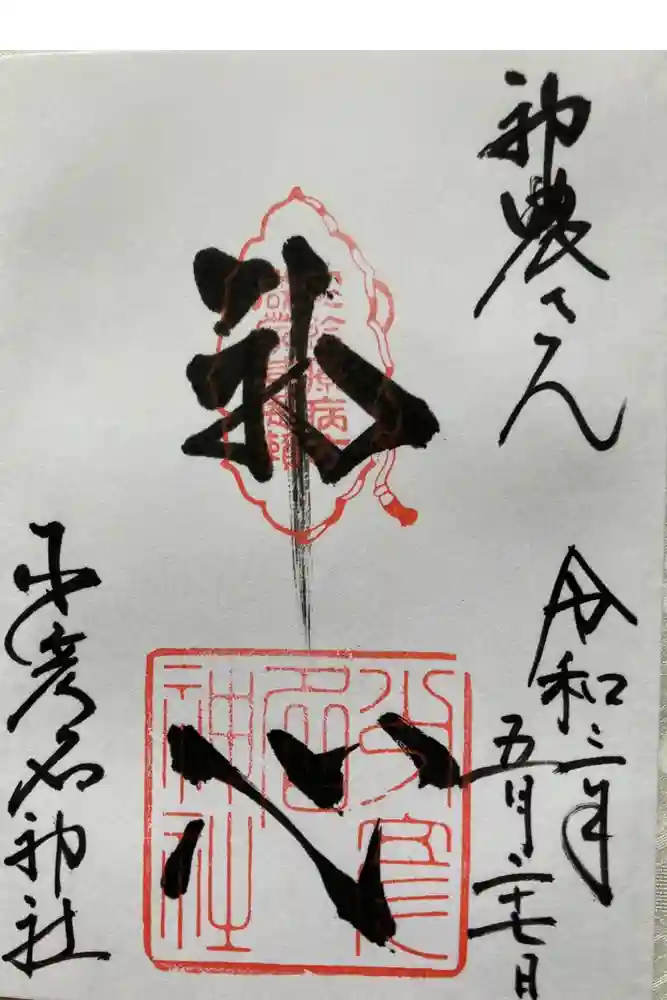 神農さん
令和三年
五月二十七日
祈
心
少彦名神社
少彦
名
神社